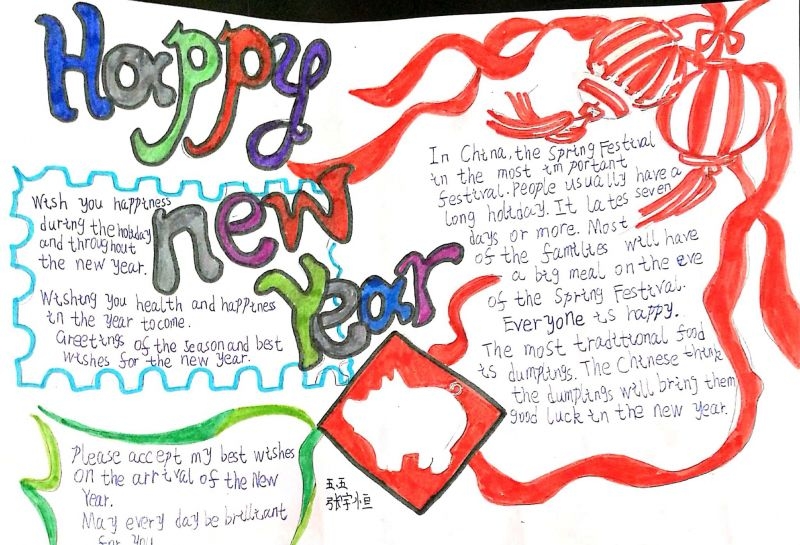 Happy
new
Year
Wish you happiness
during the holiday
and throughout
the new year.
Wishing you health and happiness
in the year to come.
Greetings of the season and best
wishes for the new year.
Please accept my best wishes
on the arrival of the New
Year.
May every day be brilliant
for you
In China, the Spring Festival
in the most important
festival. People usually have a
long holiday. It lates seven
days or more. Most
of the families will have
a big meal on the eve
of the Spring Festival.
Everyone is happy.
The most traditional food
is dumplings. The Chinese think
the dumplings will bring them
good luck in the new year.
五五
张宇恒